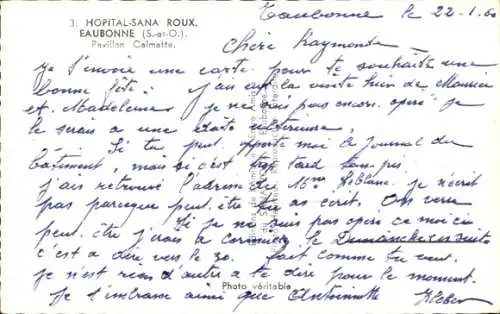 3. HOPITAL-SANA ROUX.
EAUBONNE (S.-et-O.).
Pavillon Calmette.
Eaubonne le 22-1-60
Chère Raymonde
Je t'envoie une carte pour te souhaité une
bonne fête. J'ais eu la visite hier de Maurice
et Madeleine je ne suis pas encore opéré je
le serais a une date ultérieure,
Si tu peut apporte moi le journal du
bâtiment, mais si c'est trop tard tan pis
j'ais retrouvé l'adresse de Mme Leblanc je n'écrit
pas parceque peut être tu as écrit. On verra
Si je ne suis pas opéré ce mois ci
peut être j'irais a Cormeilles le Dimanche
c'est a dire vers le 30. fait comme tu veut.
je n'est rien d'autre a te dire pour le moment.
Je t'embrasse ainsi que Antoinette Kleber
Photo véritable